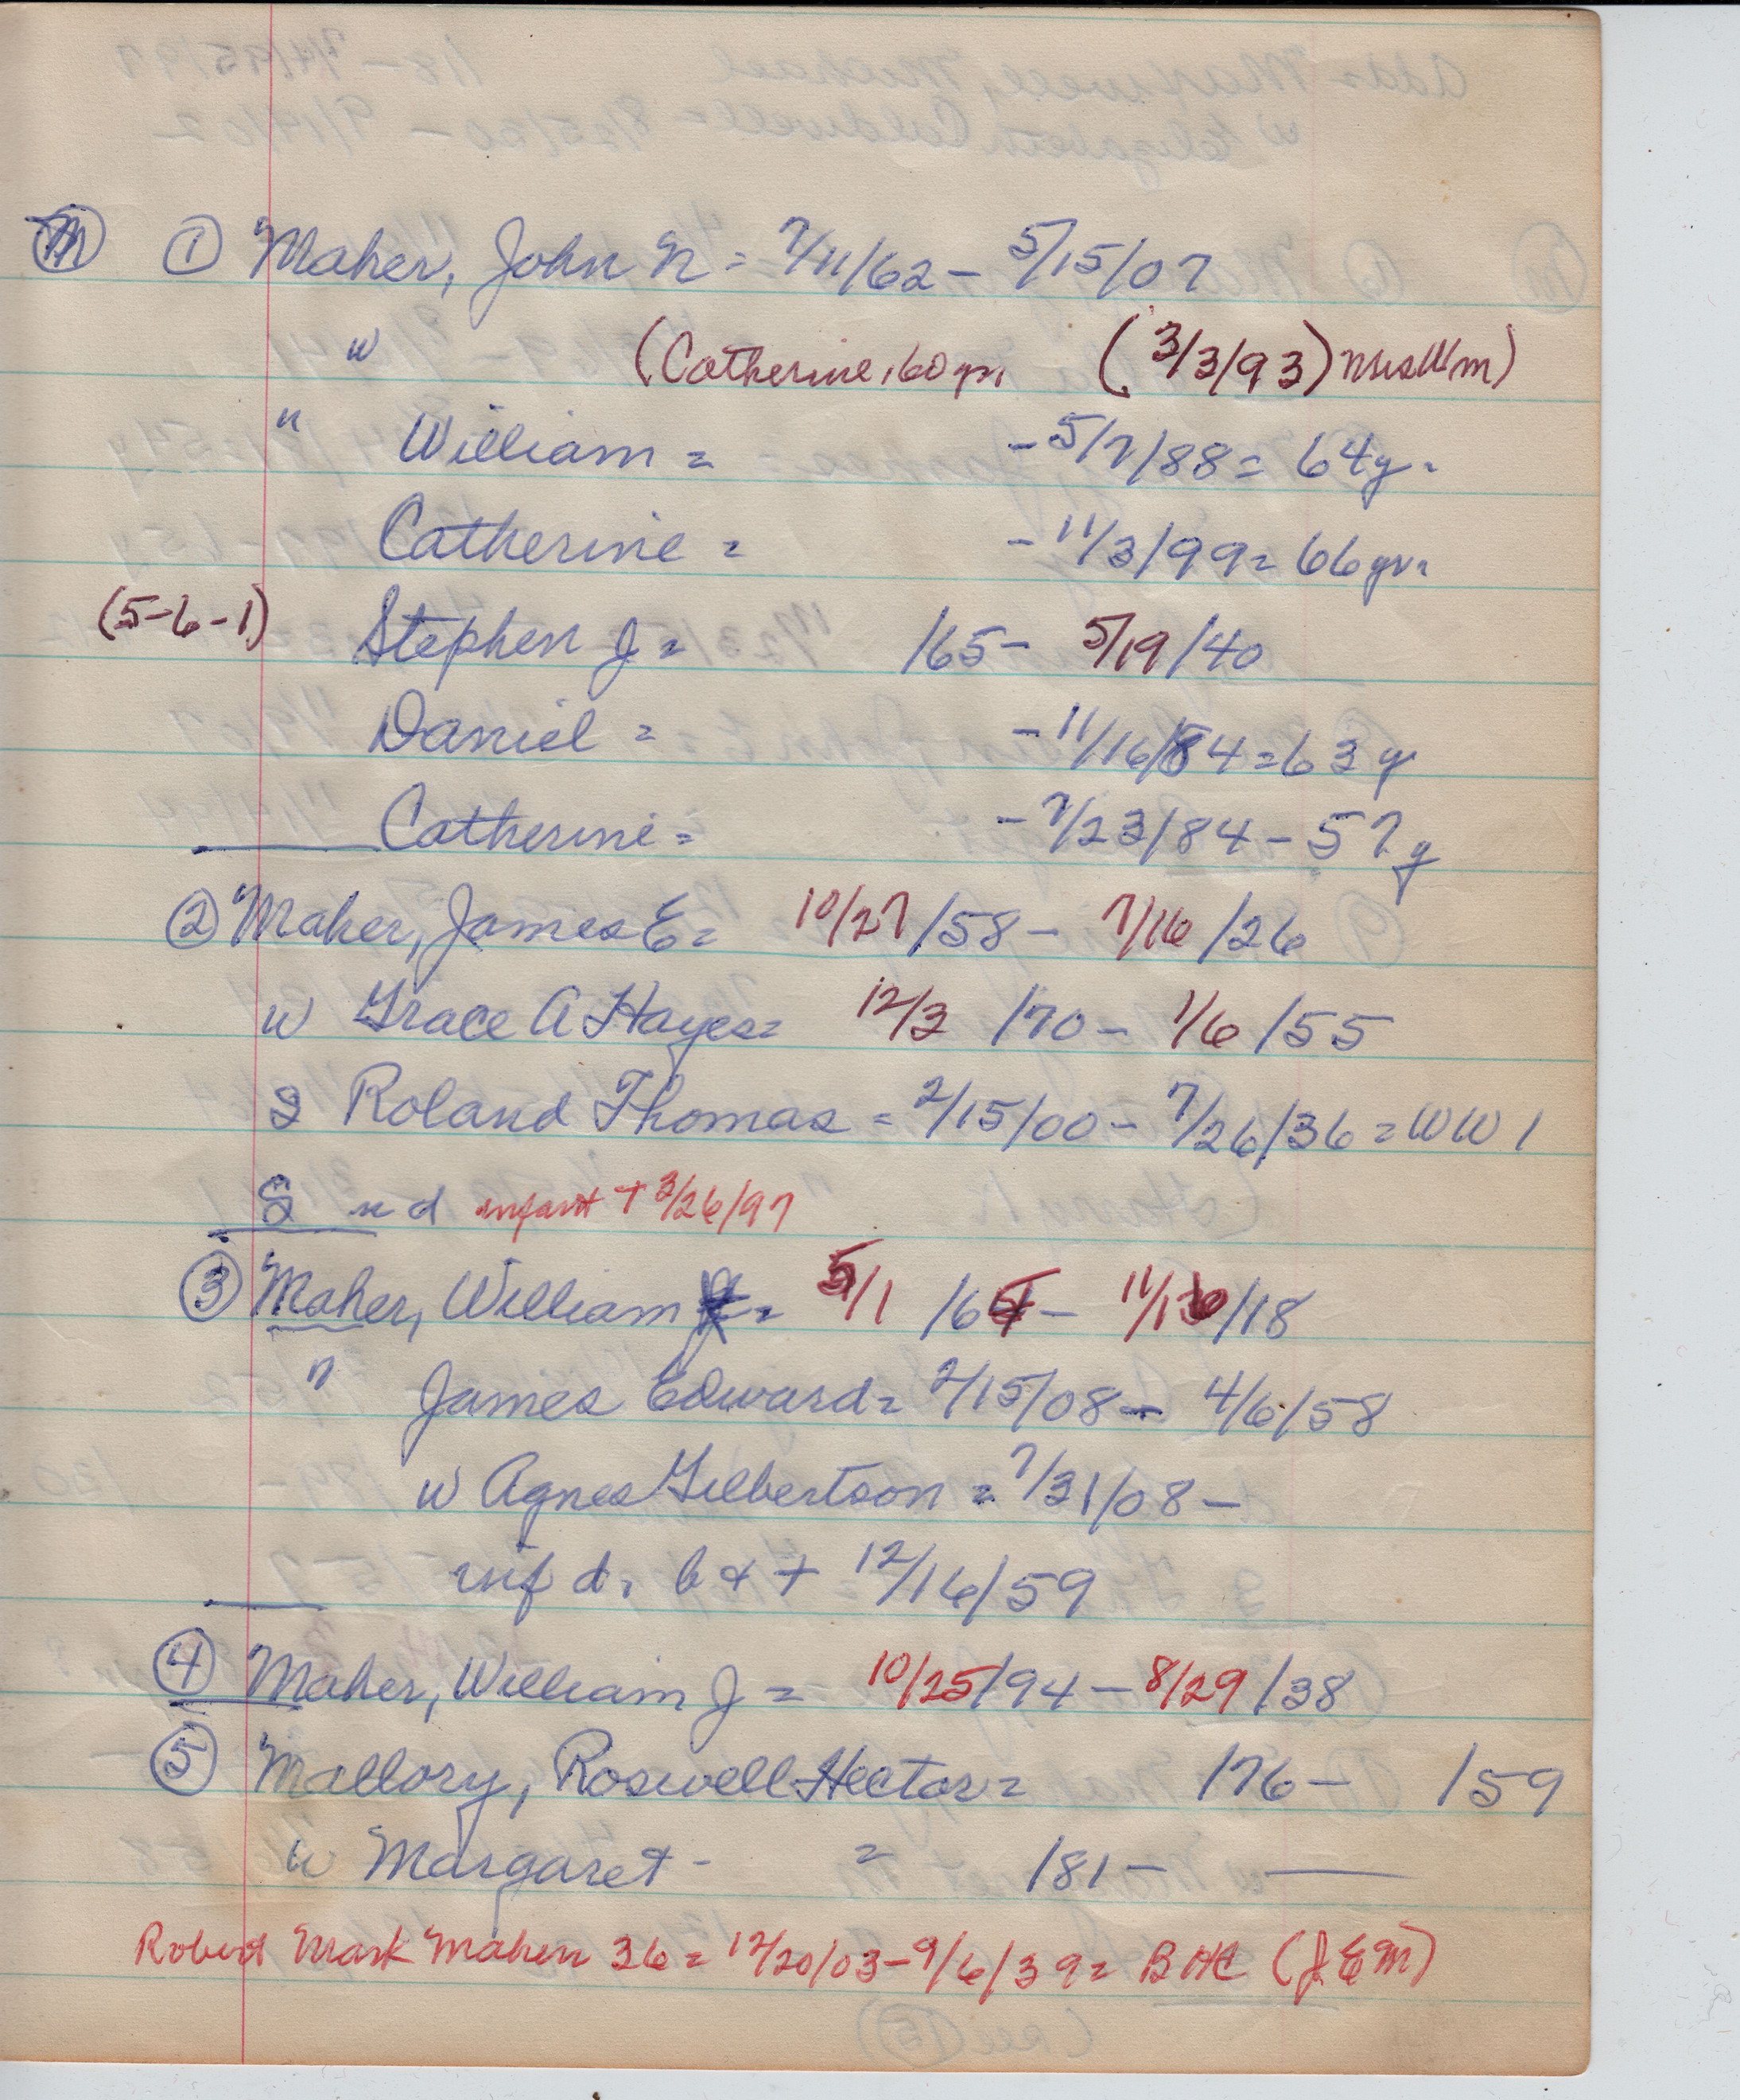 M ① Maher, John N = 7/11/62 - 5/15/07
w (Catherine, 60 yr. (3/3/93) Mrs Wm)
" William = - 5/7/88 = 64 y.
Catherine = - 11/3/99 = 66 yr.
(5-6-1) Stephen J = /65 - 5/19/40
Daniel = - 11/16/84 = 63 y
Catherine = - 7/23/84 - 57 y
② Maher, James E = 10/27/58 - 7/16/26
w Grace A Hayes = 12/3 /70 - 1/6/55
S Roland Thomas = 2/15/00 - 7/26/36 = WW 1
S n d infant + 3/26/97
③ Maher, William = 5/1 /65 - 11/16/18
" James Edward = 2/15/08 - 4/6/58
w Agnes Gilbertson = 7/31/08 -
inf d. b & + 12/16/59
④ Maher, William J = 10/25/94 - 8/29/38
⑤ Mallory, Roswell Hector = /76 - /59
w Margaret - = /81 - —
Robert Mark Maher 36 = 12/20/03 - 9/6/39 = BHC (J E M)